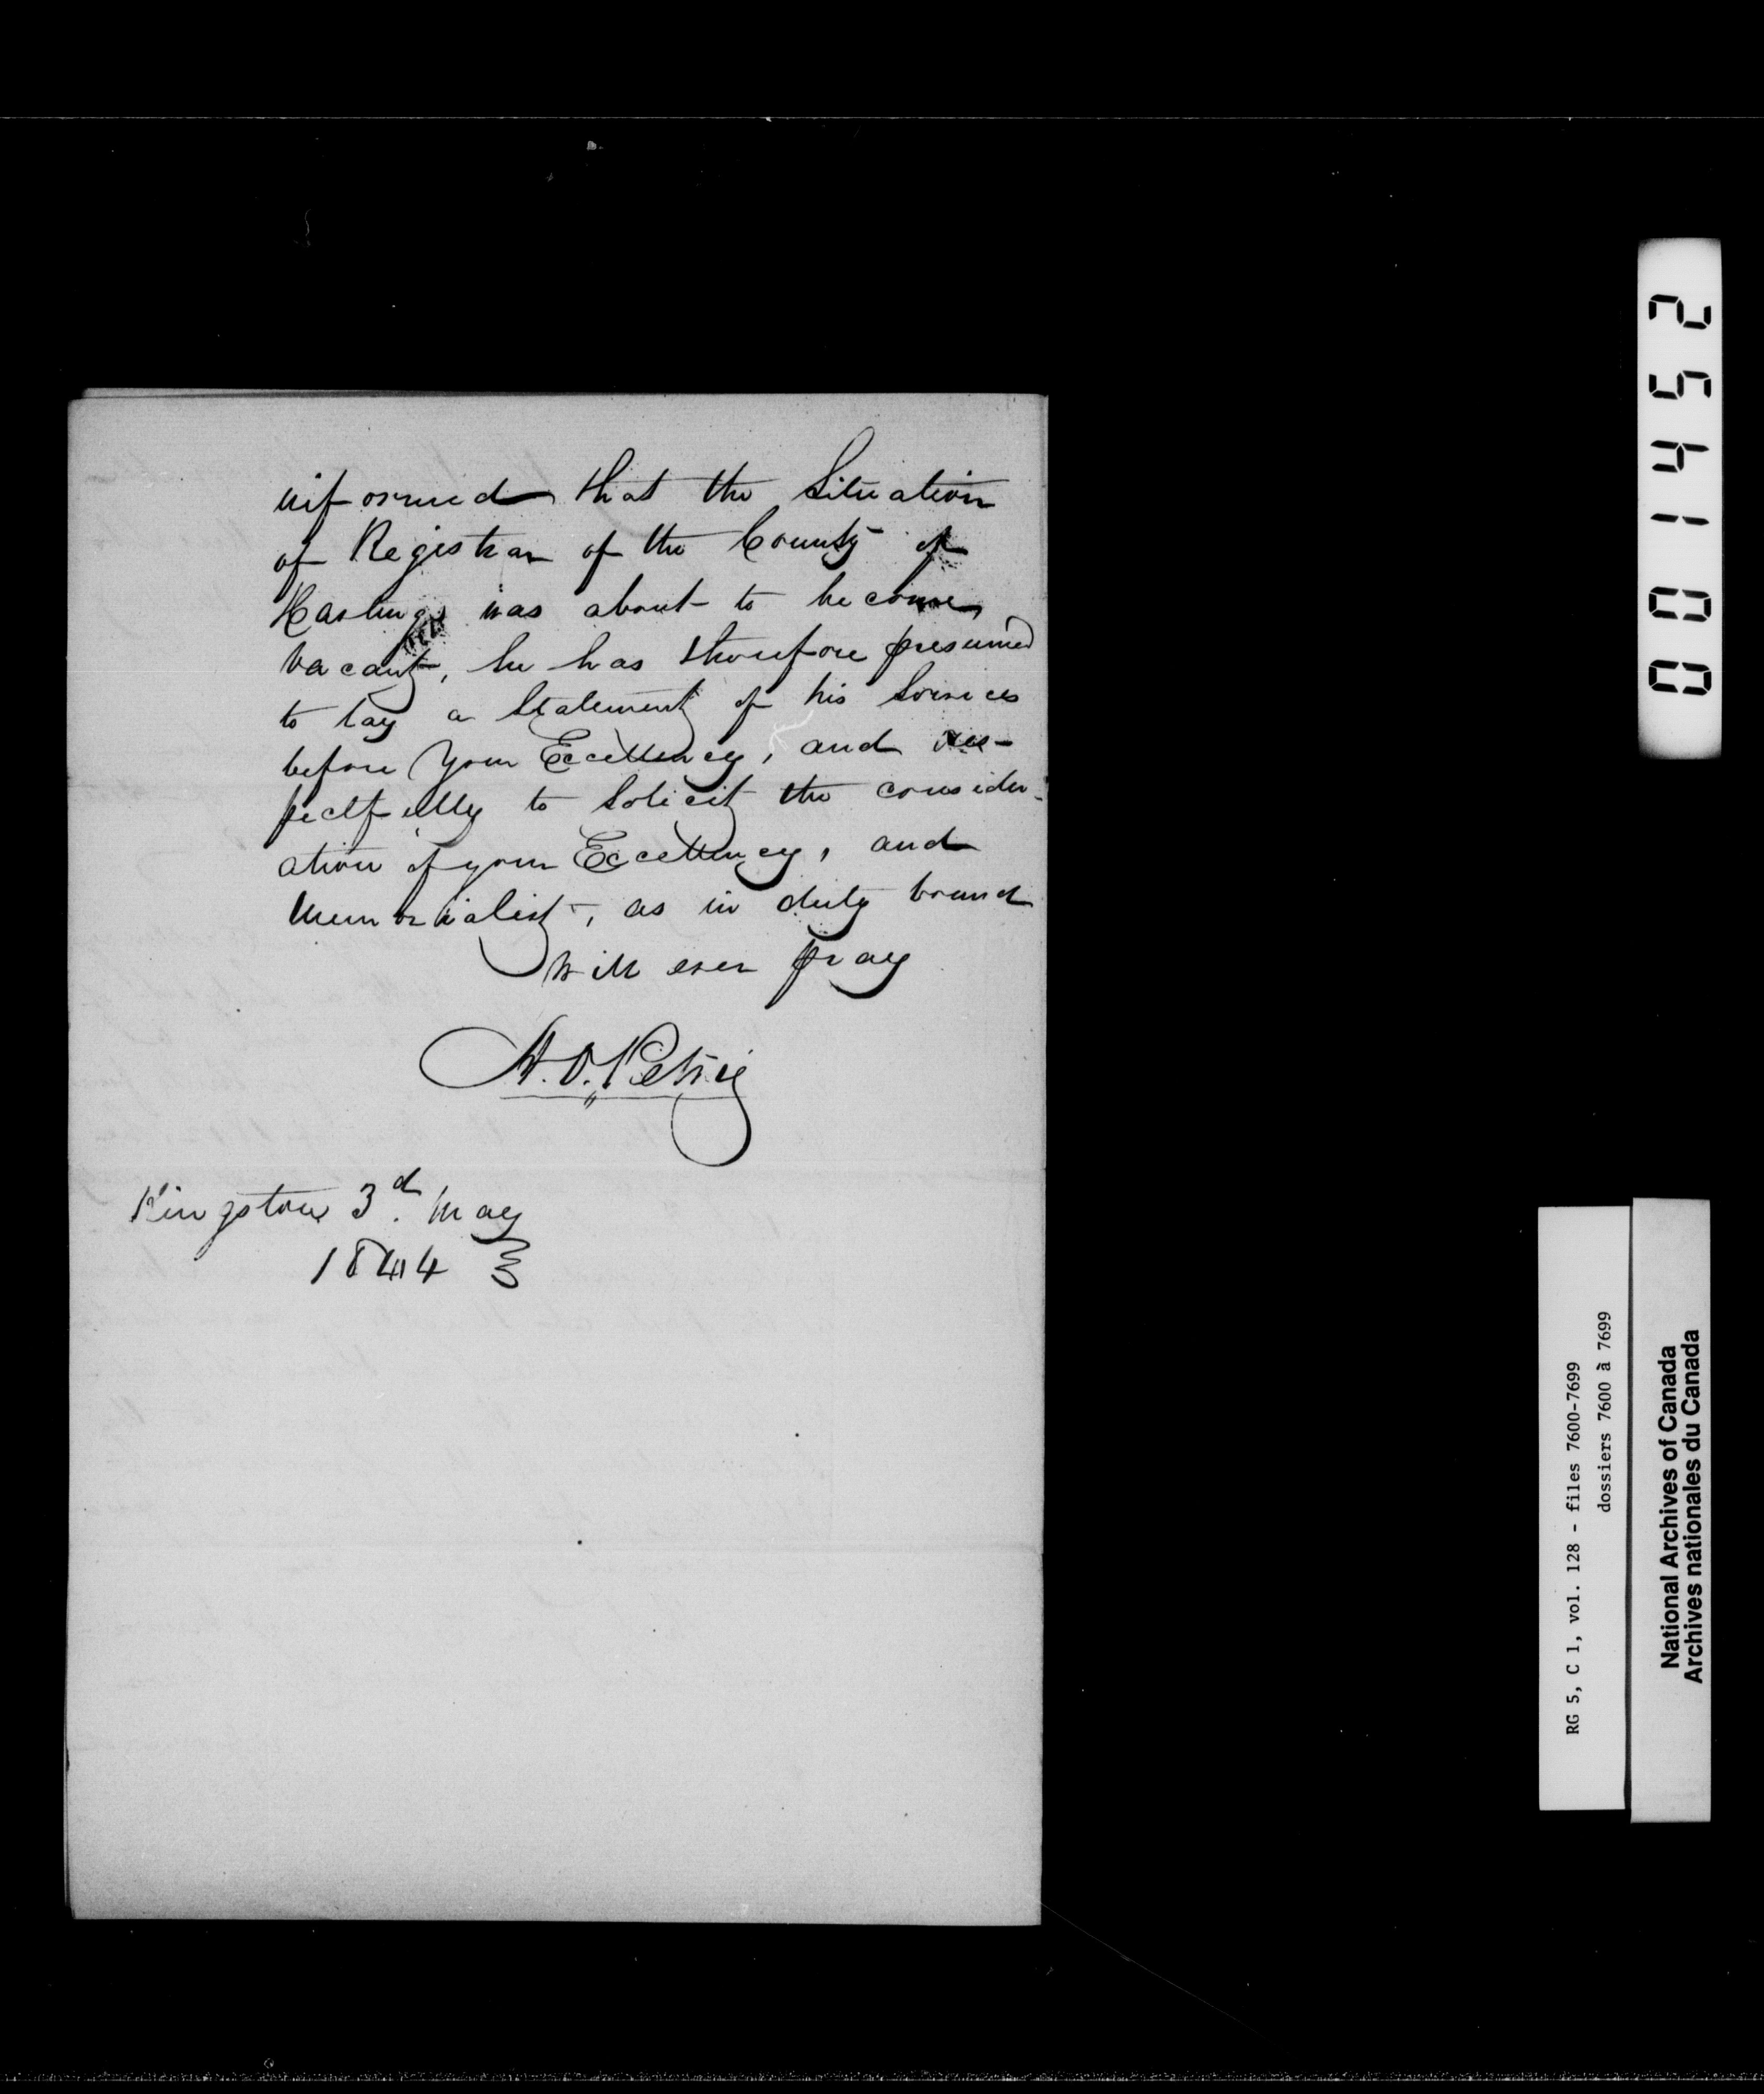 informed that the Situation
of Registrar of the County of
Hastings was about to become
vacant, he has therefore presumed
to lay a Statement of his Services
before Your Excellency, and res-
pectfully to Solicit the consider-
ation of your Excellency, and
Memorialist, as in duty bound
will ever pray
A. O. Petrie
Kingston 3d. May
1844
0001452
RG 5, C 1, vol. 128 - files 7600-7699
dossiers 7600 à 7699
National Archives of Canada
Archives nationales du Canada